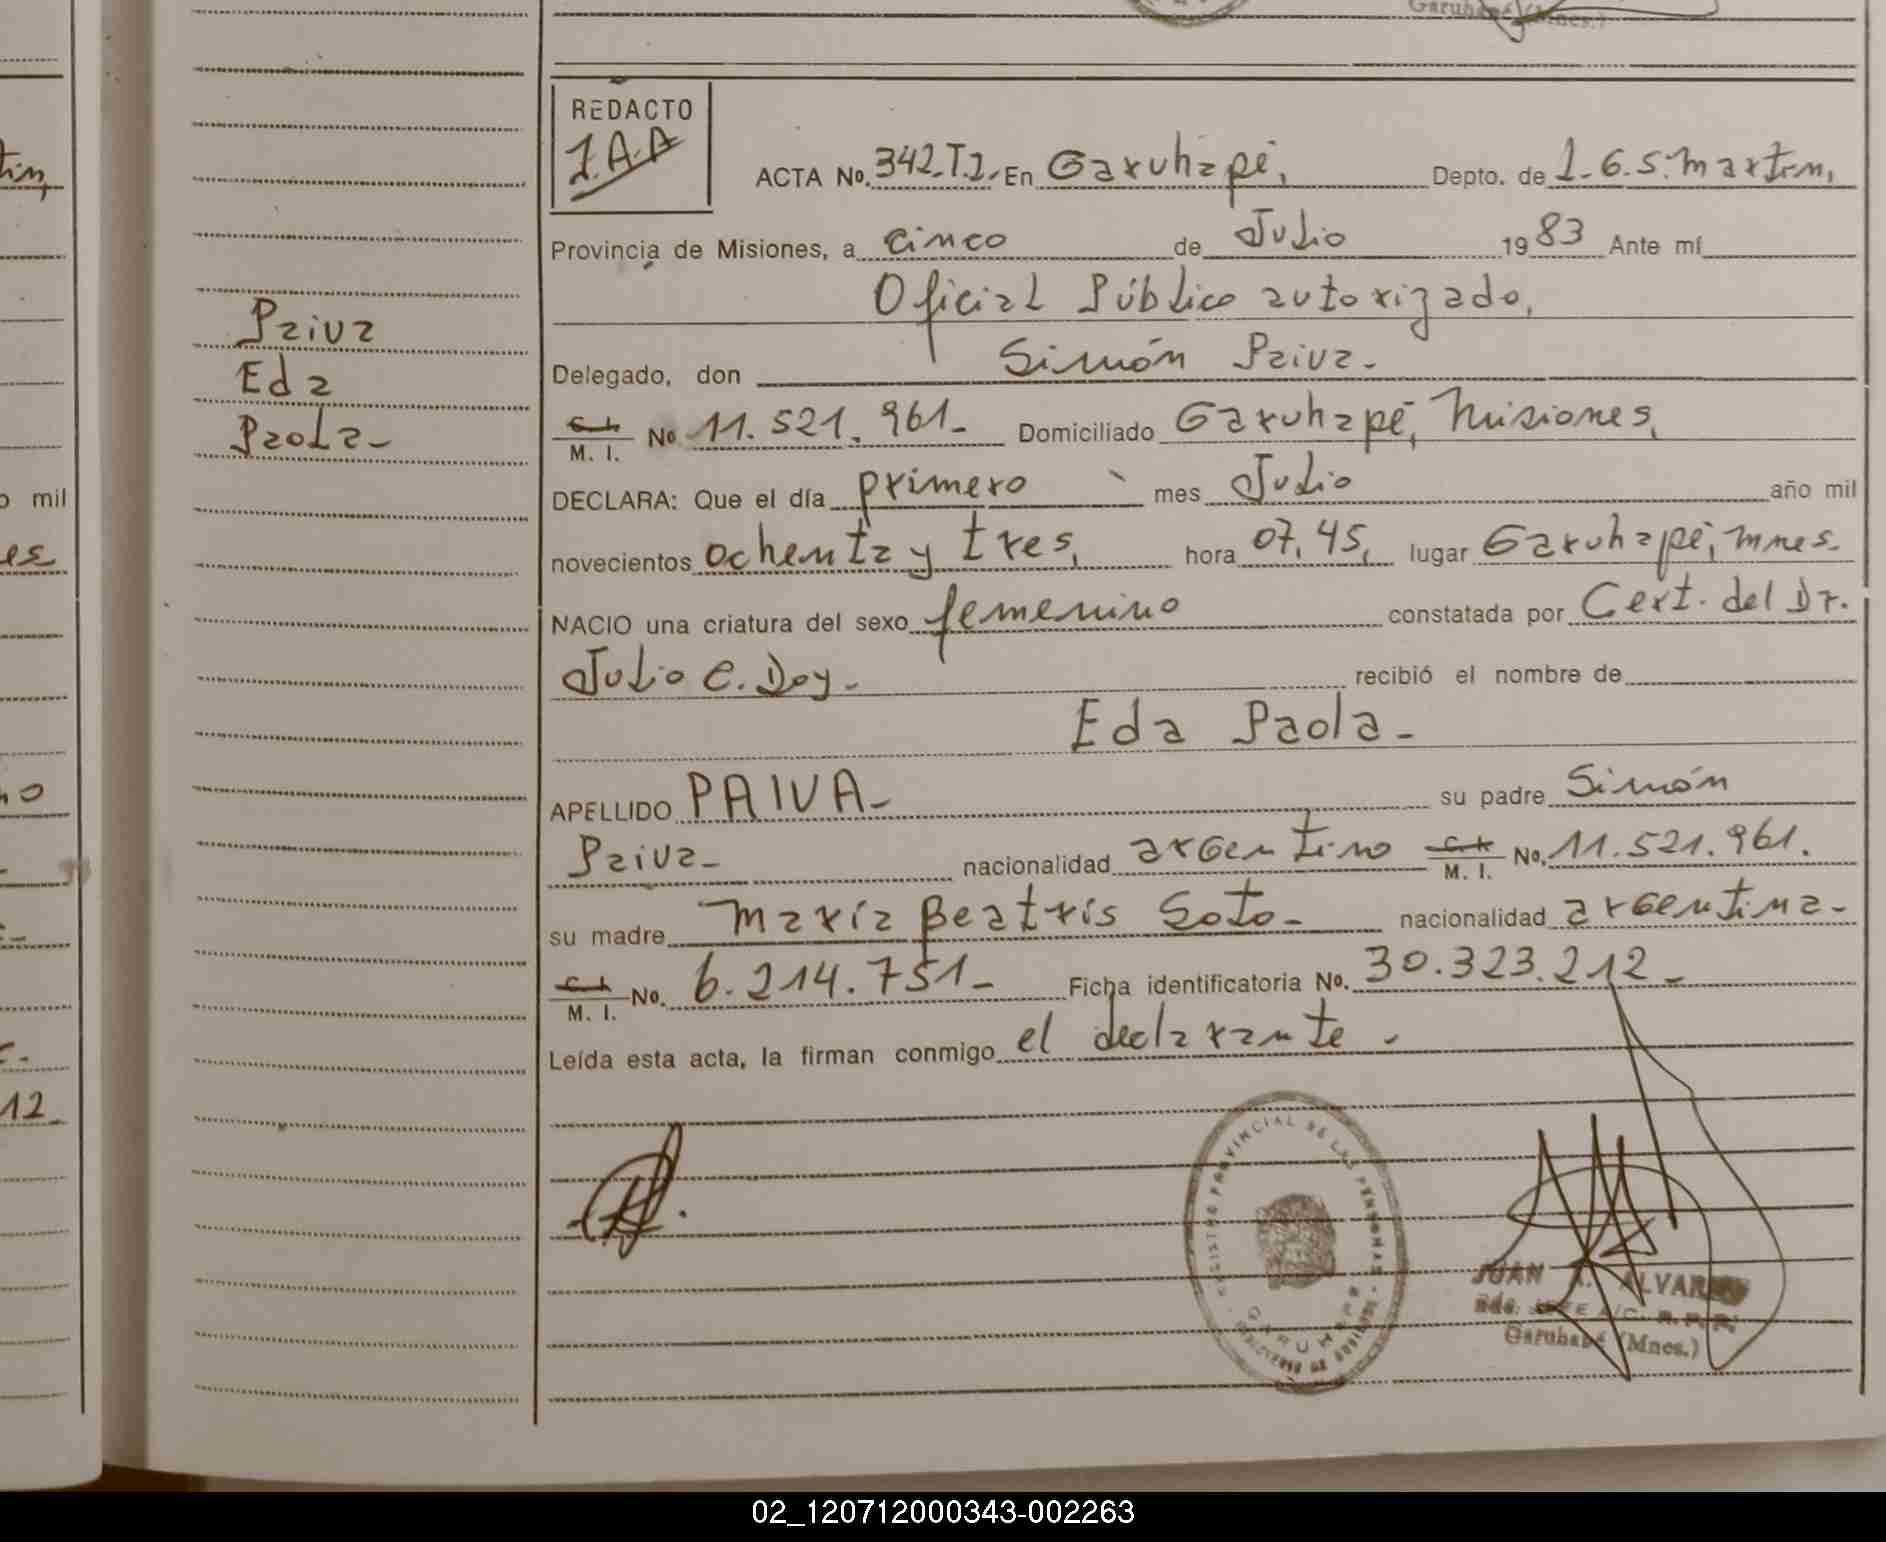 Garuhapé (Mnes.)
REDACTO
J.A.A
ACTA No. 342.T.I. En Garuhapé, Depto. de L.G.S. Martín,
Provincia de Misiones, a cinco de Julio 1983 Ante mí
Oficial Público autorizado,
Delegado, don Simón Paiva.-
C. I. / M. I. No 11.521.961.- Domiciliado Garuhapé, Misiones,
DECLARA: Que el día primero mes Julio año mil
novecientos ochenta y tres, hora 07,45, lugar Garuhapé, Mnes.
NACIO una criatura del sexo femenino constatada por Cert. del Dr.
Julio C. Doy.- recibió el nombre de
Eda Paola.-
APELLIDO PAIVA.- su padre Simón
Paiva.- nacionalidad argentino C. I. / M. I. No. 11.521.961.
su madre María Beatris Soto.- nacionalidad argentina.-
C. I. / M. I. No. 6.214.751.- Ficha identificatoria No. 30.323.212.-
Leída esta acta, la firman conmigo el declarante.-
Paiva
Eda
Paola.-
REGISTRO PROVINCIAL DE LAS PERSONAS
GARUHAPE
JUAN A. ALVAREZ
JEFE A/C. R.P.P.
Garuhapé (Mnes.)
tín,
o mil
es
no
12
02_120712000343-002263